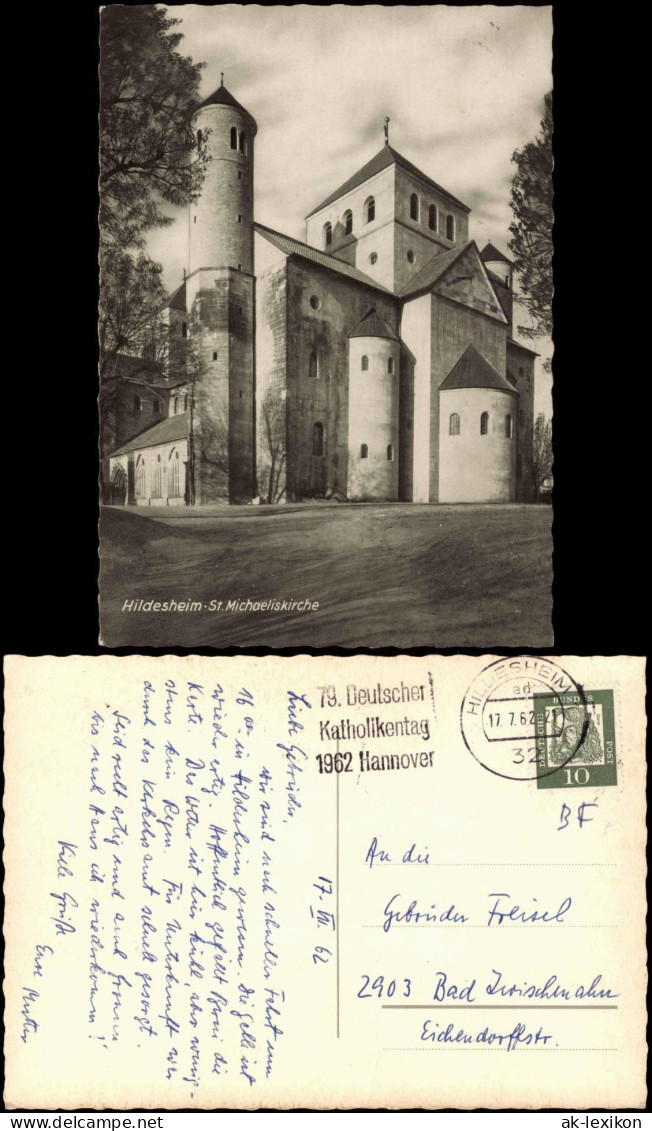 Hildesheim - St. Michaeliskirche
79. Deutscher
Katholikentag
1962 Hannover
HILDESHEIM
ad
17. 7. 62 - 21
32
DEUTSCHE BUNDESPOST
10
BF
An die
Gebrüder Freisel
2903 Bad Zwischenahn
Eichendorffstr.
17. VII. 62
Liebe Gebrüder,
wir sind nach schneller Fahrt um
16 00 in Hildesheim gewesen. Die Gelli ist
wieder artig. Hoffentlich gefällt die
Karte. Das Wetter ist hier kühl, aber wenig-
stens kein Regen. Für Unterkunft war
durch das Verkehrsamt schnell gesorgt.
Seid recht artig und auch fromm
bis nach Haus ich wiederkomm!
Viele Grüße
Eure Mutter
Delcampe.net
ak-lexikon